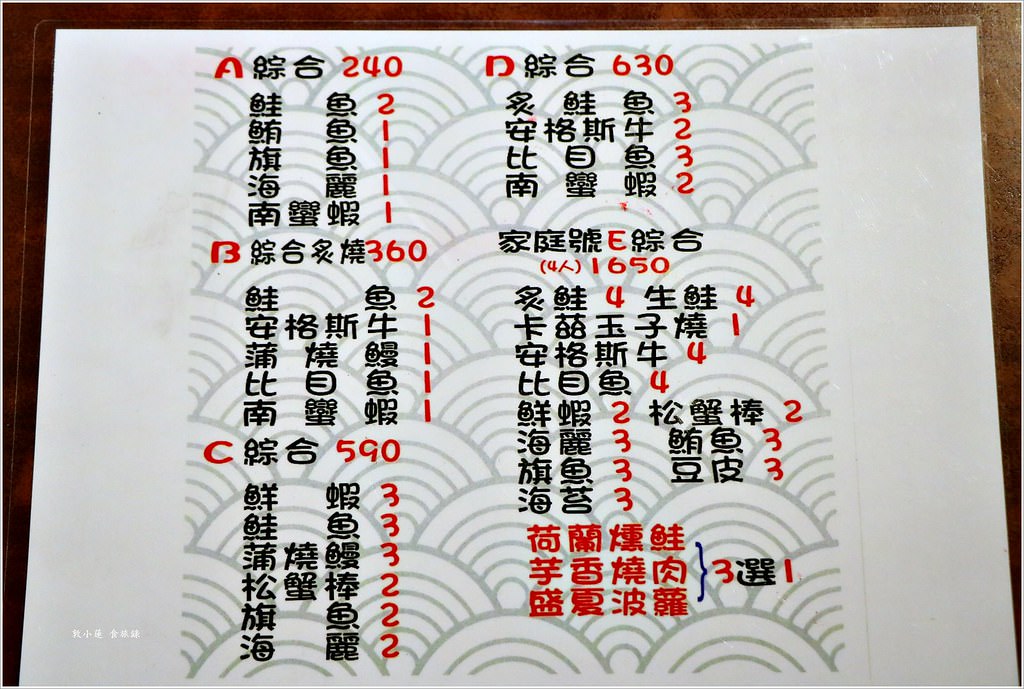 A綜合 240
鮭魚 2
鮪魚 1
旗魚 1
海麗 1
南蠻蝦 1
B綜合炙燒360
鮭魚 2
安格斯牛 1
蒲燒鰻 1
比目魚 1
南蠻蝦 1
C綜合 590
鮮蝦 3
鮭魚 3
蒲燒鰻 3
松蟹棒 2
旗魚 2
海麗 2
D綜合 630
炙鮭魚 3
安格斯牛 2
比目魚 3
南蠻蝦 2
家庭號E綜合
(4人) 1650
炙鮭 4 生鮭 4
卡茲玉子燒 1
安格斯牛 4
比目魚 4
鮮蝦 2 松蟹棒 2
海麗 3 鮪魚 3
旗魚 3 豆皮 3
海苔 3
荷蘭燻鮭
芋香燒肉 }3選1
盛夏波蘿
敦小蓮 食旅錄